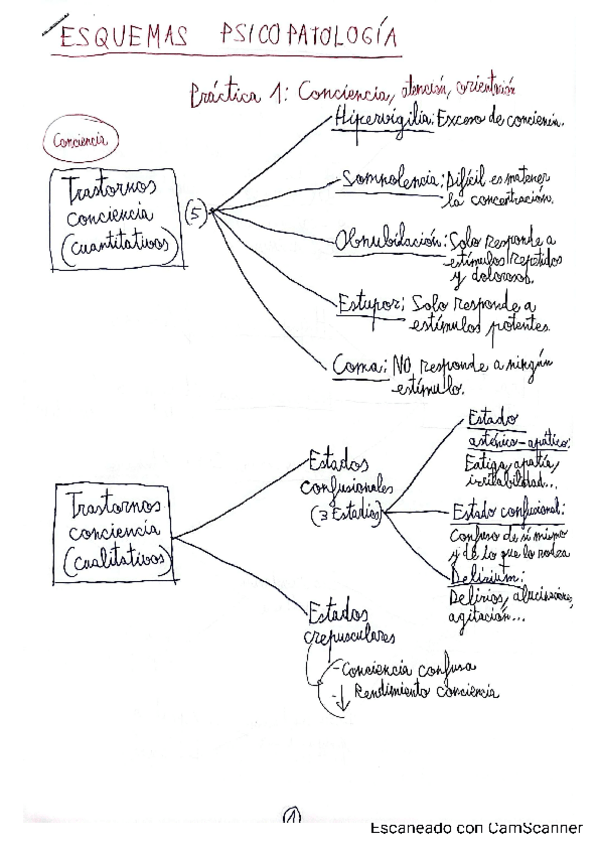 ESQUEMAS PSICOPATOLOGÍA
Práctica 1: Conciencia, atención, orientación
Conciencia
Trastornos
conciencia
(cuantitativos)
(5)
Hipervigilia: Exceso de conciencia.
Somnolencia: Difícil es matener
la concentración.
Obnubilación: Solo responde a
estímulos repetidos
y dolorosos.
Estupor: Solo responde a
estímulos potentes
Coma: NO responde a ningún
estímulo.
Trastornos
conciencia
(cualitativos)
Estados
confusionales
(3 Estadios)
Estado
asténico-apático:
Fatiga, apatía,
irritabilidad...
Estado confusional:
Confuso de sí mismo
y de lo que lo rodea
Delirium:
Delirios, alucinaciones,
agitación...
Estados
crepusculares
- Conciencia confusa
- ↓ Rendimiento conciencia
1
Escaneado con CamScanner